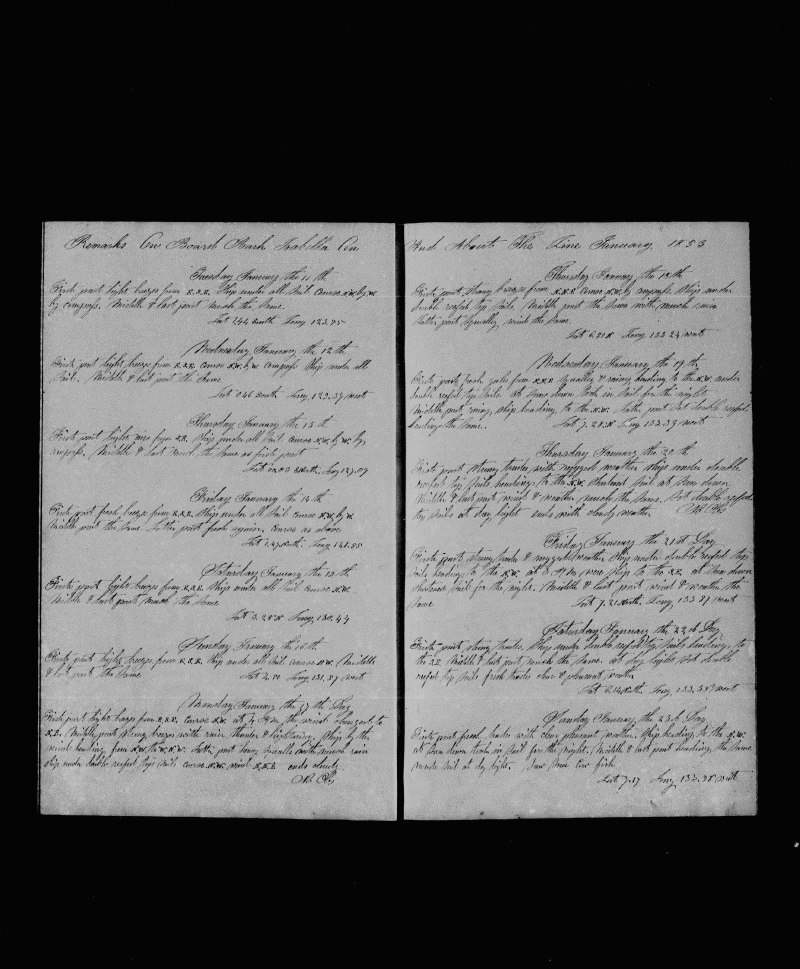 Remarks On Board Bark Isabella On
Tuesday January the 11 th
Firsts part light breeze from E.S.E. Ship under all Sail Course N.W. by W.
by compass. Middle & last part much the same.
Lat 2.44 South Long 123.55
Wednesday January the 12 th
Firsts part light breeze from E.S.E. course N.W. by W. compass Ship under all
Sail. Middle & last part the same
Lat 0.46 South Long 123.39 West
Thursday January the 13 th
Firsts part light airs from Ship under all Sail course N.W. by W. by
compass. Middle & last much the same as first part
Lat Long 127.09
Friday January the 14 th
Firsts part fresh breeze from E.S.E. Ship under all Sail course N.W. by W.
Middle part the same. Latter part fresh again. Course as above
Lat 1.47 North. Long 128.55
Saturday January the 15 th
Firsts part light breeze from E.S.E. Ship under all Sail course N.W.
Middle & last part much the same
Lat 3.28 N Long 130.44
Sunday January the 16 th
Firsts part light breeze from E.S.E. Ship under all Sail course N.W. Middle
& last part the same Lat 4.51 Long 131.57 West
Monday January the 17 th Day
Firsts part light breeze from E.S.E. course N.W. at 7 P.M. the wind changed to
N.E. Middle part strong breeze with rain thunder & lightning. Ship by the
wind heading from N.W. to W.N.W. Latter part heavy squalls with much rain
Ship under double reefed top Sails course N.W. wind E.N.E. ends cloudy
And About The Line January 1853
Thursday January the 18 th
Firsts part strong breeze from E.N.E. Course N.W. by compass. Ship under
double reefed top Sails. Middle part the same with much rain
Latter part Squally, wind the same.
Lat 6.21 N Long 133.24 West
Wednesday January the 19 th
Firsts parts fresh gales from E.N.E. Squally & rainy heading to the N.W. under
double reefed top Sails. at Sun down took in Sail for the night
Middle part rainy, ship heading to the N.W. latter part Set double reefed
heading the same. Lat 7.28 N Long 133.39 West
Thursday January the 20 th
Firsts part strong trades with rugged weather Ship under double
reefed top Sails heading to the N.W. Shortened Sail at Sun down
Middle & last part wind & weather much the same. Set double reefed
top Sails at day light ends with cloudy weather.
Friday January the 21 st Day
Firsts part strong trades & rugged weather, Ship under double reefed top
Sails heading to the N.W. at 3 P.M. wore Ship to the S.E. at Sun down
Shortened Sail for the night. Middle & last part wind & weather the
same Lat 7.21 North. Long 133.57 West
Saturday January the 22 d Day
Firsts part strong trades, Ship under double reefed top Sails heading to
the S.E. Middle & last part much the same. at day light Set double
reefed top Sails fresh trades clear & pleasant weather
Lat 6.14 North Long 133.38 West
Sunday January the 23 d Day
Firsts part fresh trades with clear pleasant weather. Ship heading to the N.W.
at Sun down took in Sail for the night. Middle & last part heading the same
made Sail at day light. Saw Some Cow fish
Lat 7.57 Long 133.58 West